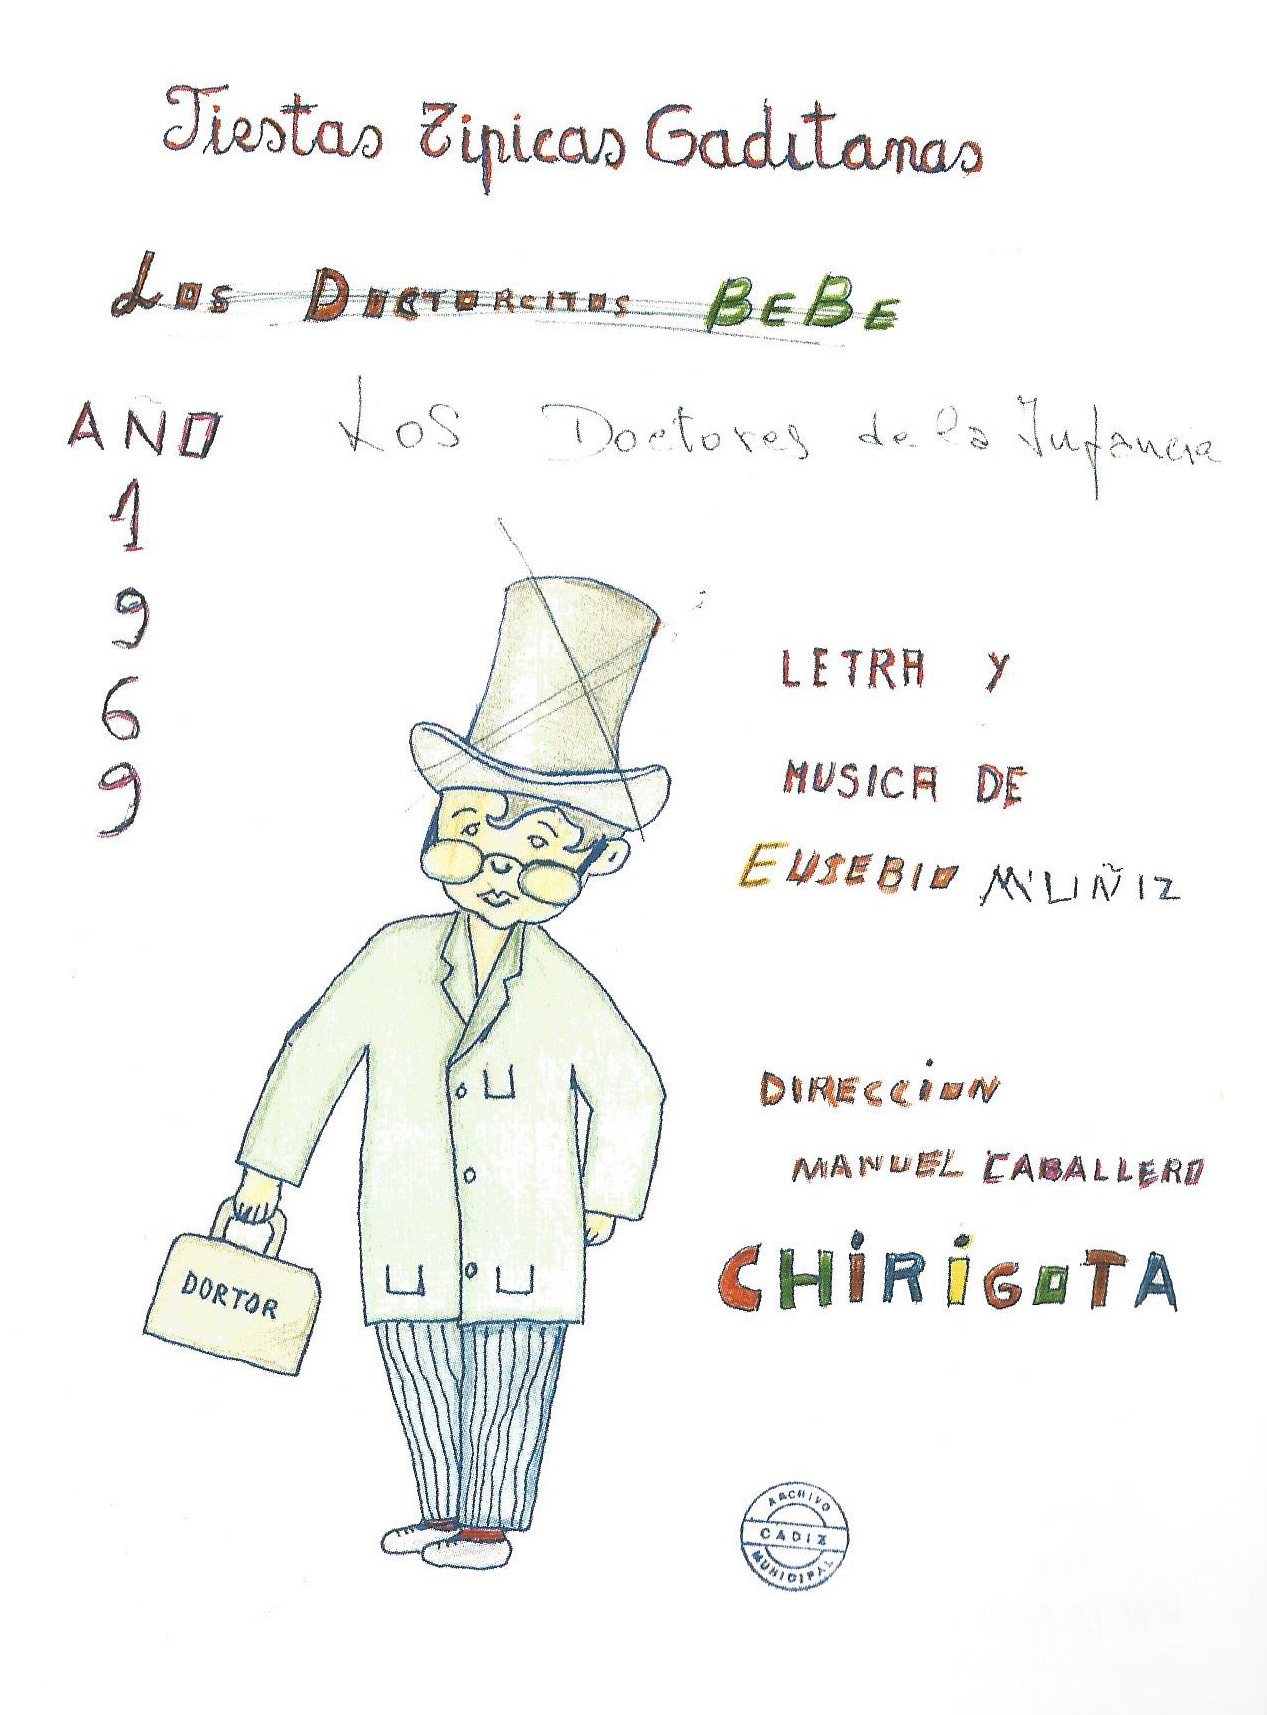 Fiestas Tipicas Gaditanas
Los Doctorcitos BeBe
AÑO
Los Doctores de la Infancia
1
9
6
9
LETRA Y
MUSICA DE
EUSEBIO MUÑIZ
DIRECCION
MANUEL CABALLERO
CHIRIGOTA
DORTOR
ARCHIVO
CADIZ
MUNICIPAL